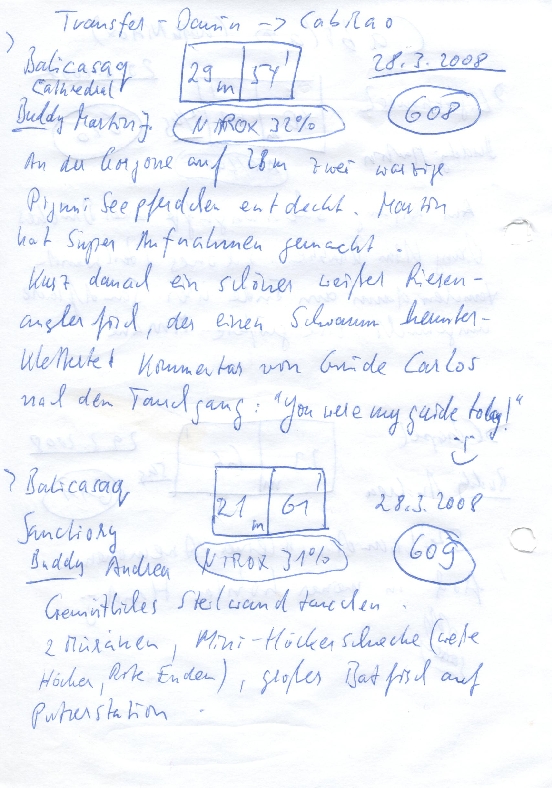 Transfer - Dauin -> Cabilao
Balicasaq
Cathedral
29 m 54'
28.3.2008
Buddy Martin J.
NITROX 32%
608
An der Gorgone auf 28m zwei warzige
Pigmi Seepferdchen entdeckt. Martin
hat Super Aufnahmen gemacht.
Kurz danach ein schöner weißer Riesen-
anglerfisch, der einen Schwamm herunter-
kletterte! Kommentar von Guide Carlos
nach dem Tauchgang: "You were my guide today!"
Balicasaq
Sanctiory
21 m 61'
28.3.2008
Buddy Andrea
NITROX 31%
609
Gemütliches Steilwandtauchen.
2 Muränen, Mini-Höckerschnecke (weiße
Höcker, Rote Enden), großer Batfisch auf
Putzerstation.